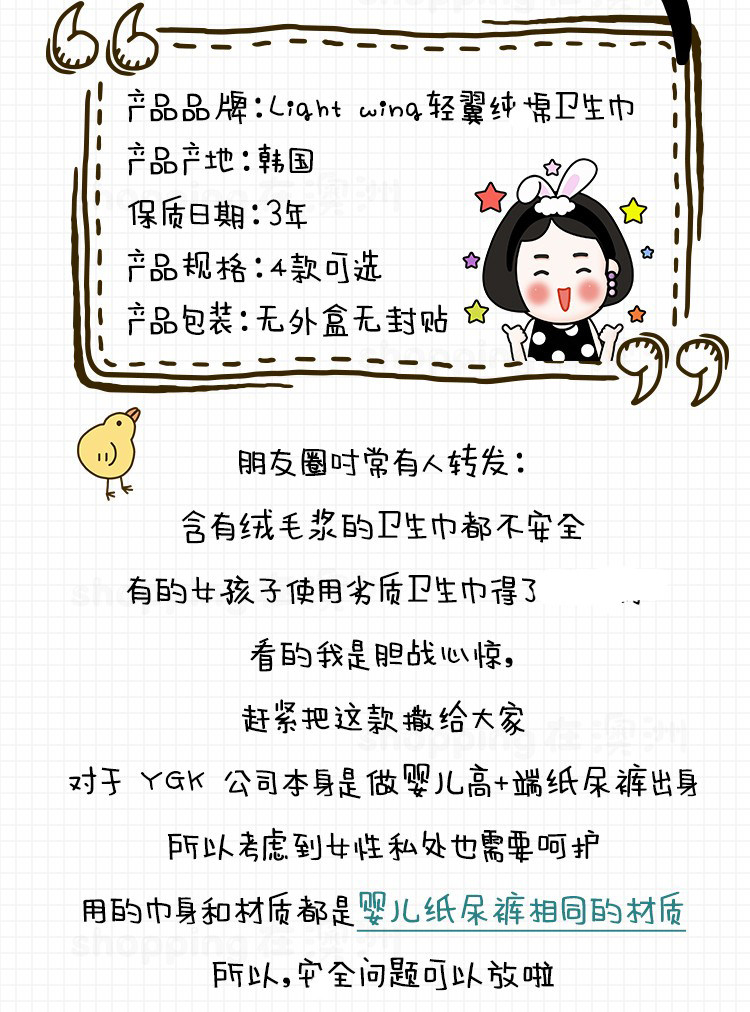 产品品牌:Light wing轻翼纯棉卫生巾
产品产地:韩国
保质日期:3年
产品规格:4款可选
产品包装:无外盒无封贴
朋友圈时常有人转发:
含有绒毛浆的卫生巾都不安全
有的女孩子使用劣质卫生巾得了
看的我是胆战心惊,
赶紧把这款撒给大家
对于 YGK 公司本身是做婴儿高+端纸尿裤出身
所以考虑到女性私处也需要呵护
用的巾身和材质都是婴儿纸尿裤相同的材质
所以,安全问题可以放啦